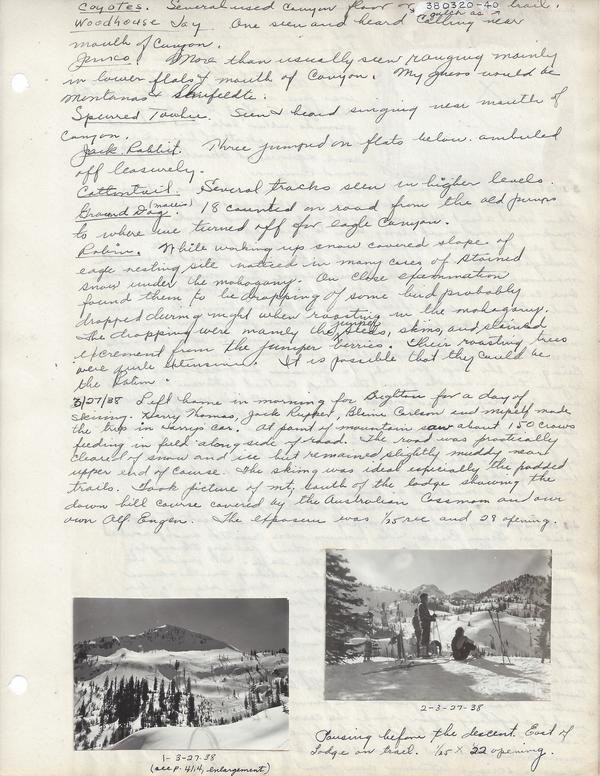 Coyotes. Several used canyon floor trail.
380320-40
Woodhouse Jay. One seen and heard calling near
mouth of Canyon.
Junco. More than usually seen ranging mainly
in lower flats & mouth of Canyon. My guess would be
Montanas &
Spurred Towhee. Seen & heard singing near mouth of
Canyon.
Jack Rabbit. Three jumped on flats below. ambuled
off leasurely.
Cottontail. Several tracks seen in higher levels.
Ground Dog. 18 counted on road from the old pumps
to where we turned off for eagle Canyon.
Robin. While working up snow covered slope of
eagle nesting site noticed in many cases of stained
snow under the mahogany. On close examination
found them to be dropping of some bird probably
dropped during night when roasting in the mahogany.
The dropping were mainly the juniper skins, and stained
excrement from the juniper berries. Their roasting trees
were quite extensive. It is possible that they could be
the Robin.
3/27/38 Left home in morning for Brighton for a day of
skiing. Harry Thomas, Jack Carlson and myself made
the trip in Harrys car. At point of mountain saw about 150 crows
feeding in field along side of road. The road was practically
cleared of snow and ice but remained slightly muddy near
upper end of course. The skiing was ideal especially the padded
trails. Took picture of mt. south of the lodge showing the
down hill course covered by the Australian and our
own Alf Engen. The exposure was 1/25 sec and 29 opening.
1-3-27-38
(see p. 414, enlargement)
2-3-27-38
Pausing before the descent. East of
Lodge on trail. 1/25 x 22 opening.